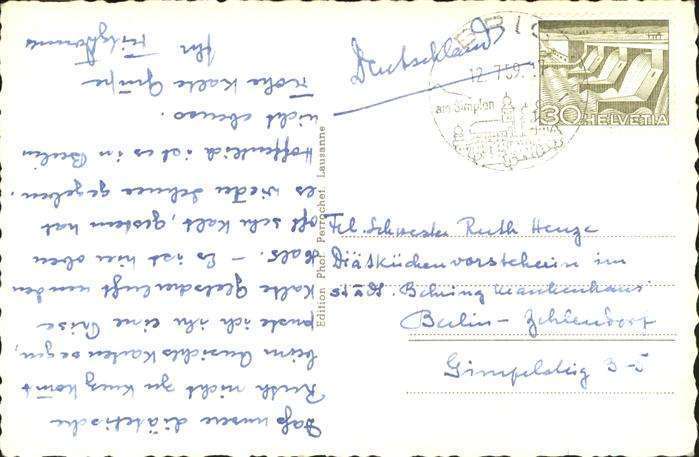 Daß unsere diätetische
Ruth nicht zu kurz kommt
beim Ansichtskartensegen,
puste ich ihr eine Prise
kalte Gletscherluft um den
Hals. – Es ist hier oben
oft sehr kalt, gestern hat
es wieder Schnee gegeben.
Hoffentlich ist es in Berlin
nicht ebenso.
Frohe kalte Grüße
Ihr
Edition Phot Perrochet Lausanne
Deutschland
BRIG
12.7.59.-17
am Simplon
30 HELVETIA
Frl. Schwester Ruth Henze
Diätküchenvorsteherin im
städt. Behring Krankenhaus
Berlin-Zehlendorf
Gimpelsteig 3-5